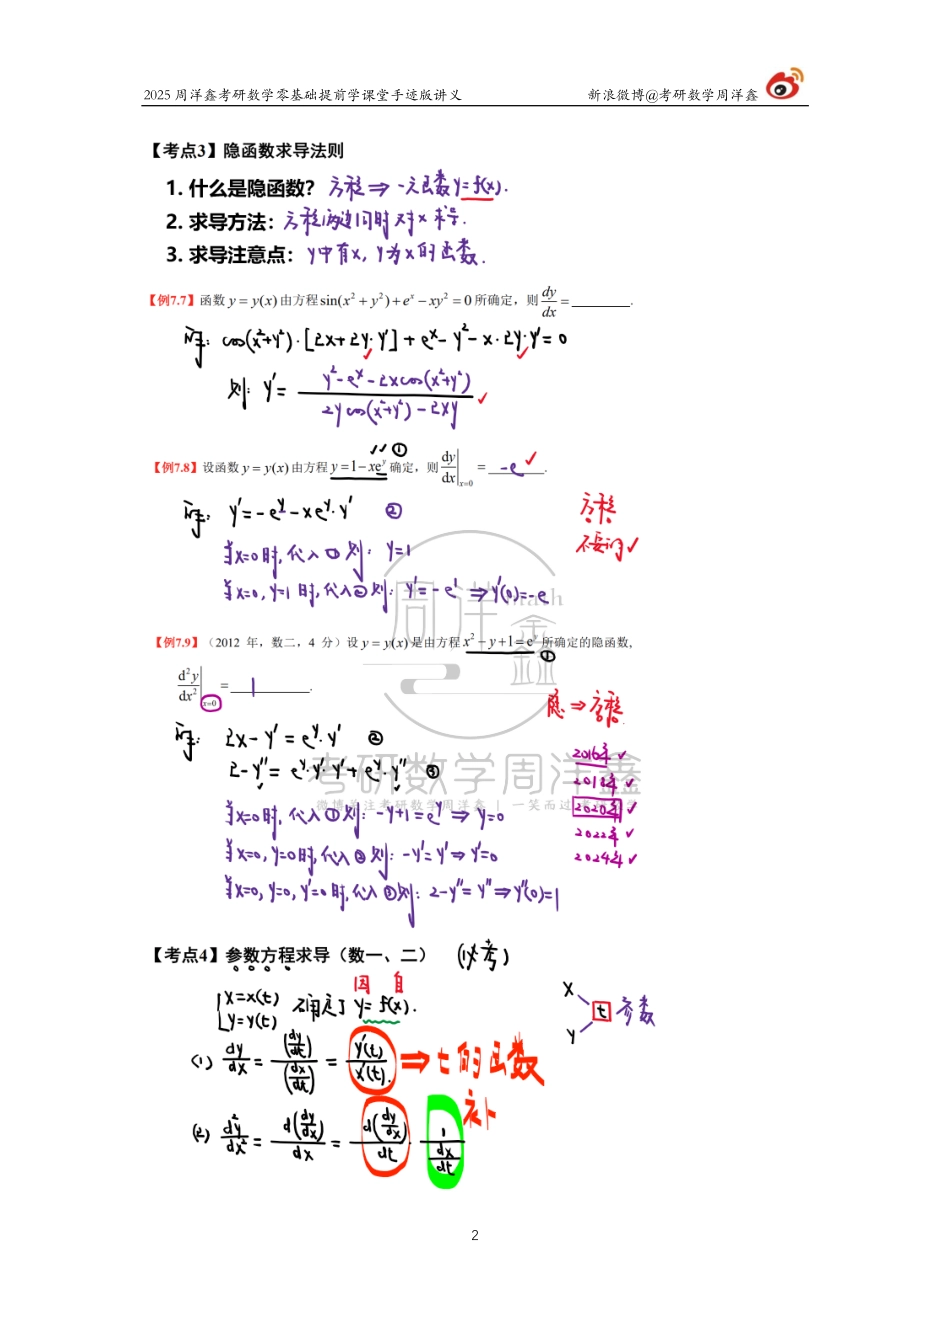 2025 周洋鑫考研数学零基础提前学课堂手迹版讲义 新浪微博@考研数学周洋鑫
【考点3】隐函数求导法则
1. 什么是隐函数？ 方程⇒一元函数y=f(x).
2. 求导方法：方程两边同时对x求导.
3. 求导注意点： y中有x, y为x的函数.
【例7.7】函数 y = y(x) 由方程 sin(x² + y²) + eˣ − xy² = 0 所确定，则 dy/dx = ________.
cos(x²+y²)·[2x+2y·y']+eˣ-y²-x·2y·y'=0
则: y'= (y²-eˣ-2xcos(x²+y²))/(2ycos(x²+y²)-2xy) ✓
✓✓①
【例7.8】设函数 y = y(x) 由方程 y = 1 − xeʸ 确定，则 dy/dx|x=0 = -e ✓.
y'=-eʸ-xeʸ·y' ②
方程
✓
当x=0时,代入①则: y=1
当x=0,y=1时,代入②则: y'=-e¹⇒y'(0)=-e
周洋鑫
math
【例7.9】（2012 年，数二，4 分）设 y = y(x) 是由方程 x² − y + 1 = eʸ 所确定的隐函数，
①
d²y/dx²|x=0 = 1.
隐⇒方程
2x-y'=eʸ·y' ②
2-y''=eʸ·y'·y'+eʸ·y'' ③
2016年✓
2018年✓
2020年✓
2022年✓
2024年✓
考研数学周洋鑫
微博关注考研数学周洋鑫 | 一笑而过
当x=0时,代入①则: -y+1=eʸ⇒y=0
当x=0,y=0时,代入②则: -y'=y'⇒y'=0
当x=0,y=0,y'=0时,代入③则: 2-y''=y''⇒y''(0)=1
【考点4】参数方程求导（数一、二） (必考)
因 自
{x=x(t)
y=y(t) 确定了 y=f(x).
x
y
t 参数
(1) dy/dx = (dy/dt)/(dx/dt) = y'(t)/x'(t). ⇒ t的函数
补
(2) d²y/dx² = d(dy/dx)/dx = d(dy/dx)/dt · 1/(dx/dt)
2